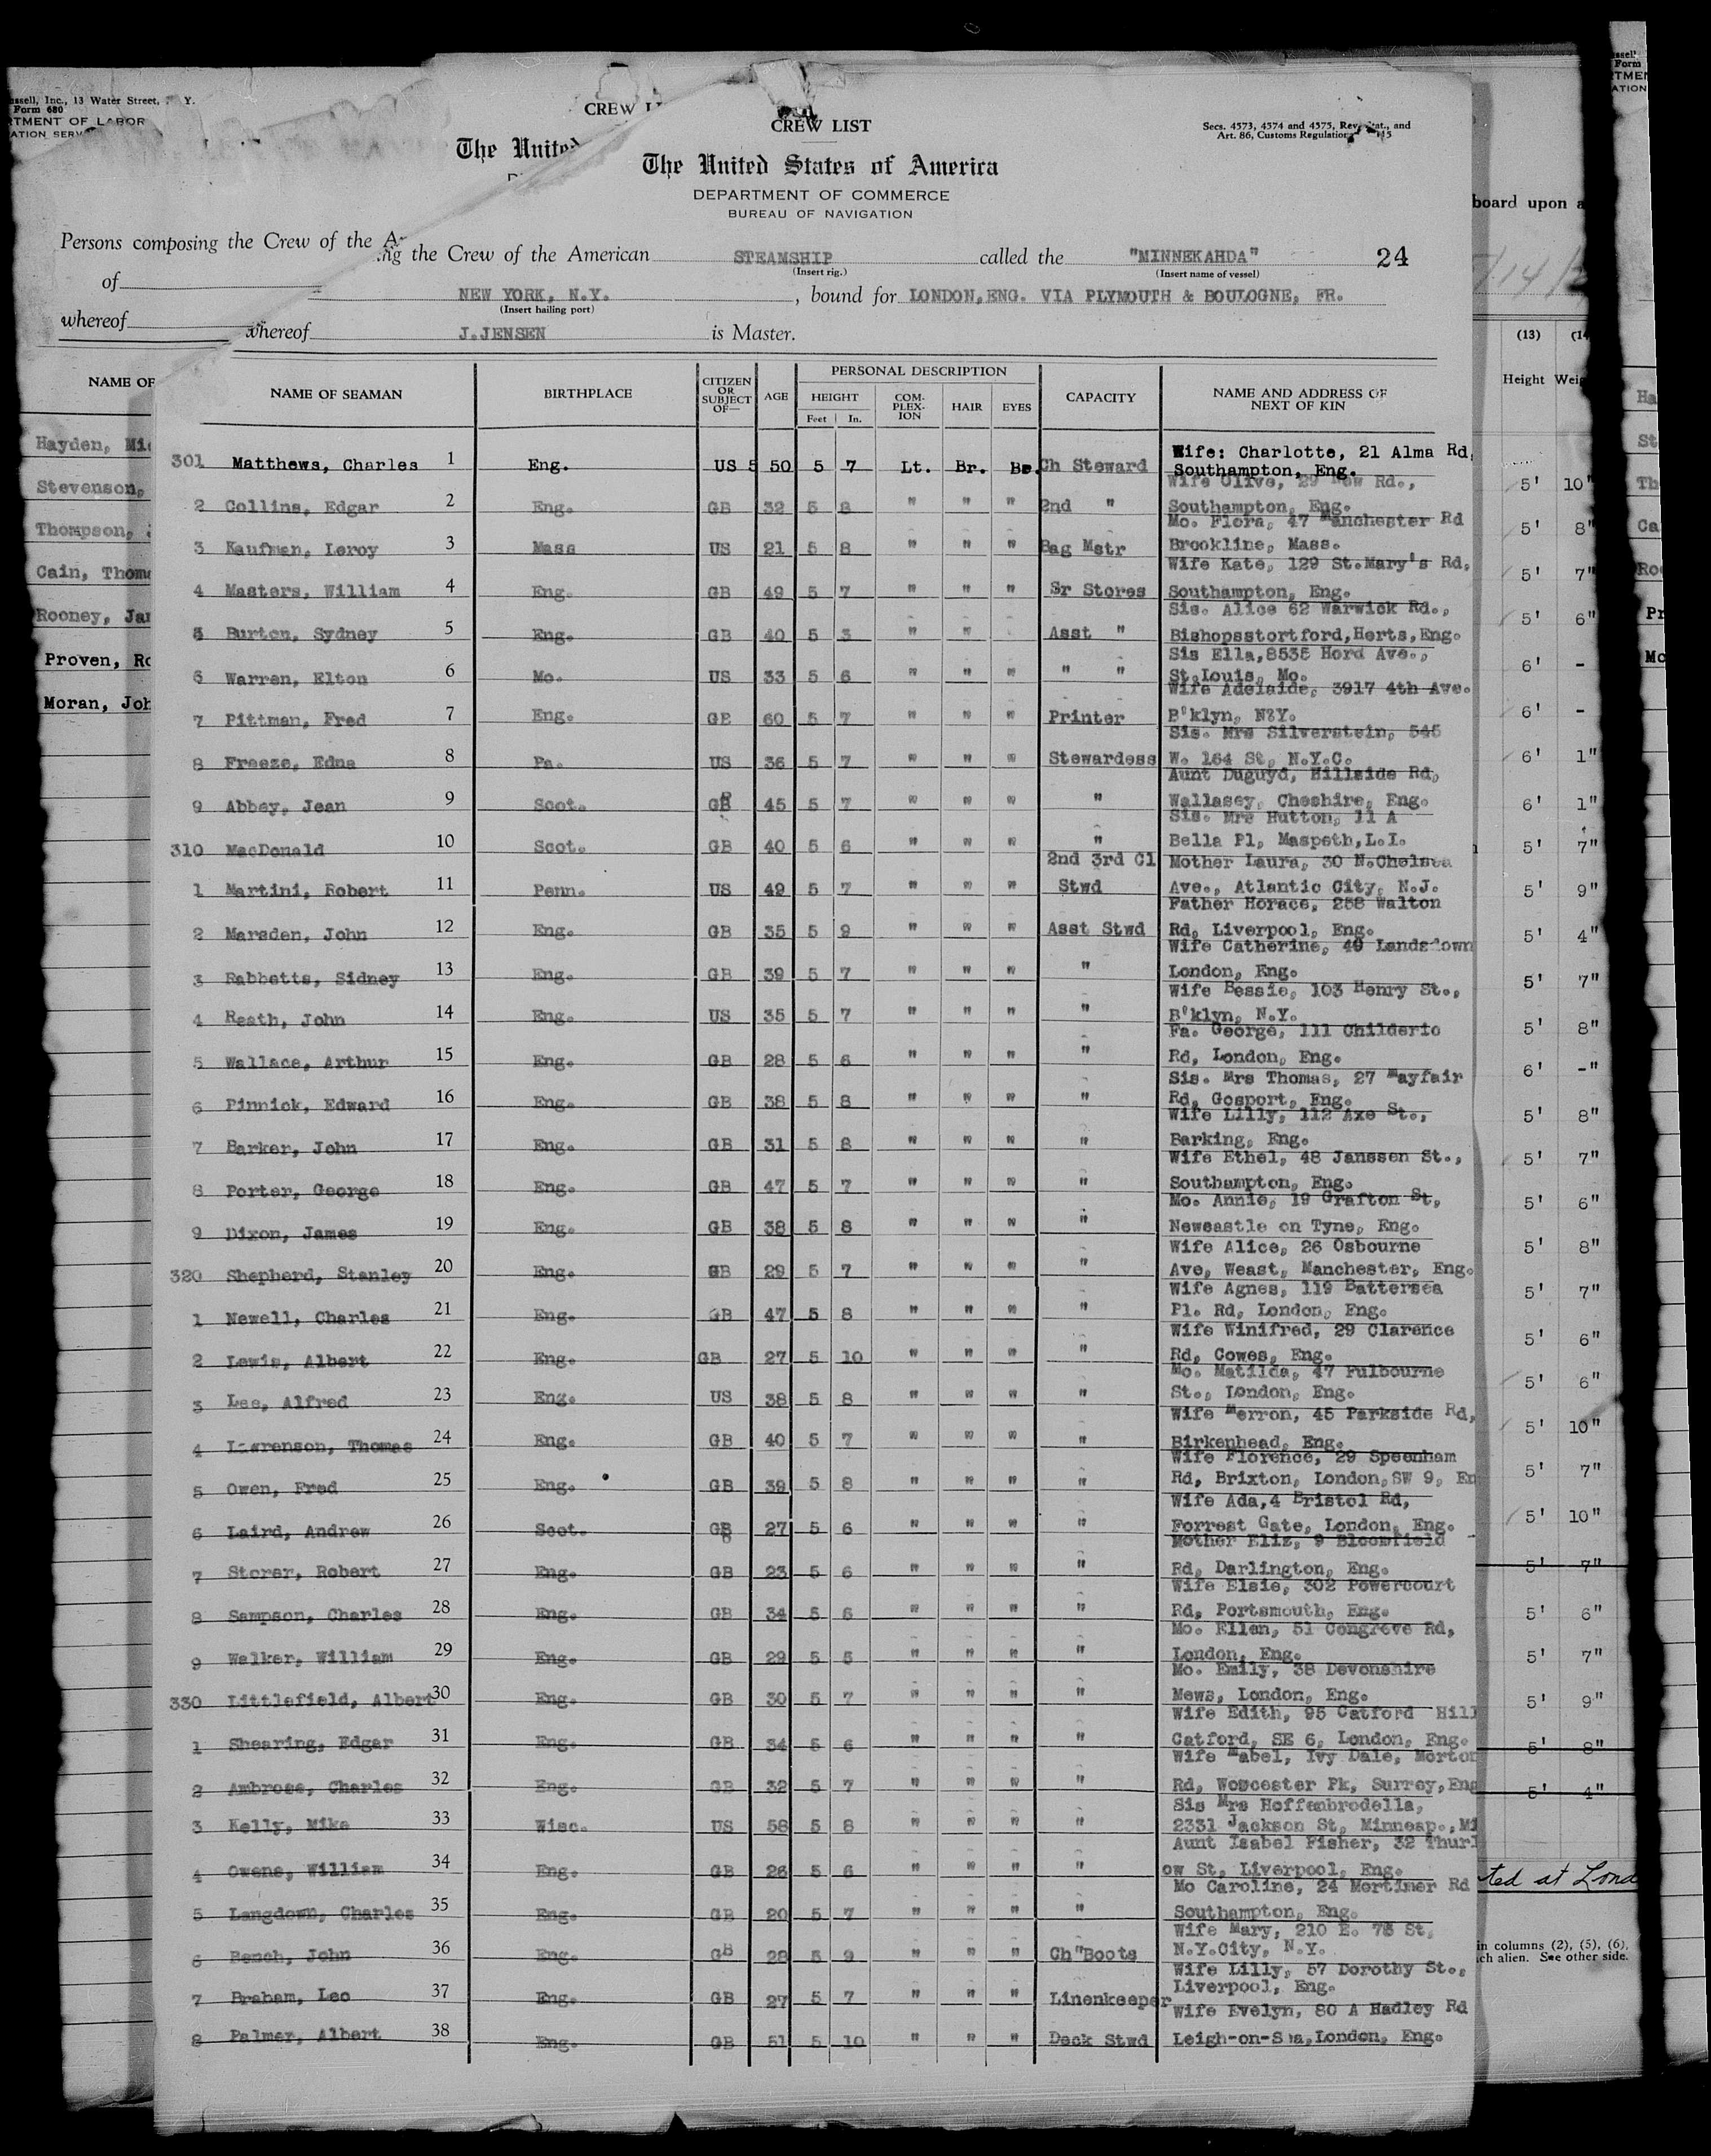 assell, Inc., 13 Water Street, Y.
Form 680
RTMENT OF LABOR
ATION SERV
CREW LI
The United
CREW LIST
The United States of America
DEPARTMENT OF COMMERCE
BUREAU OF NAVIGATION
Secs. 4573, 4574 and 4575, Rev. Stat., and
Art. 86, Customs Regulations
Persons composing the Crew of the A
ng the Crew of the American STEAMSHIP called the "MINNEKAHDA" 24
(Insert rig.) (Insert name of vessel)
of NEW YORK, N.Y., bound for LONDON,ENG. VIA PLYMOUTH & BOULOGNE, FR.
(Insert hailing port)
whereof whereof J.JENSEN is Master.
NAME OF
NAME OF SEAMAN BIRTHPLACE CITIZEN OR SUBJECT OF— AGE PERSONAL DESCRIPTION CAPACITY NAME AND ADDRESS OF NEXT OF KIN
HEIGHT COM-PLEX-ION HAIR EYES
Feet In.
301 Matthews, Charles 1 Eng. US 5 50 5 7 Lt. Br. Br. Ch Steward Wife: Charlotte, 21 Alma Rd,
Southampton, Eng.
2 Collins, Edgar 2 Eng. GB 32 5 8 " " " 2nd " Wife Olive, 29 New Rd.,
Southampton, Eng.
3 Kaufman, Leroy 3 Mass US 21 5 8 " " " Bag Mstr Mo. Flora, 47 Manchester Rd
Brookline, Mass.
4 Masters, William 4 Eng. GB 49 5 7 " " " Sr Stores Wife Kate, 129 St.Mary's Rd,
Southampton, Eng.
5 Burton, Sydney 5 Eng. GB 40 5 3 " " Asst " Sis. Alice 62 Warwick Rd.,
Bishopsstortford,Herts,Eng.
6 Warren, Elton 6 Mo. US 33 5 6 " " " " " Sis Ella,8535 Hord Ave.,
St.Louis, Mo.
7 Pittman, Fred 7 Eng. GB 60 5 7 " " " Printer Wife Adelaide, 3917 4th Ave.
B'klyn, N?Y.
8 Freeze, Edna 8 Pa. US 36 5 7 " " " Stewardess Sis. Mrs Silverstein, 545
W. 164 St, N.Y.C.
9 Abbey, Jean 9 Scot. GB 45 5 7 " " " " Aunt Duguyd, Hillside Rd,
Wallasey, Cheshire, Eng.
310 MacDonald 10 Scot. GB 40 5 6 " " " " Sis. Mrs Hutton, 11 A
Bella Pl, Maspeth,L.I.
1 Martini, Robert 11 Penn. US 49 5 7 " " " 2nd 3rd Cl Stwd Mother Laura, 30 N.Chelsea
Ave., Atlantic City, N.J.
2 Marsden, John 12 Eng. GB 35 5 9 " " " Asst Stwd Father Horace, 258 Walton
Rd, Liverpool, Eng.
3 Rabbetts, Sidney 13 Eng. GB 39 5 7 " " " " Wife Catherine, 49 Landsdown
London, Eng.
4 Reath, John 14 Eng. US 35 5 7 " " " " Wife Bessie, 103 Henry St.,
B'klyn, N.Y.
5 Wallace, Arthur 15 Eng. GB 28 5 6 " " " " Fa. George, 111 Childeric
Rd, London, Eng.
6 Pinnick, Edward 16 Eng. GB 38 5 8 " " " " Sis. Mrs Thomas, 27 Mayfair
Rd, Gosport, Eng.
7 Barker, John 17 Eng. GB 31 5 8 " " " " Wife Lilly, 112 Axe St.,
Barking, Eng.
8 Porter, George 18 Eng. GB 47 5 7 " " " " Wife Ethel, 48 Janssen St.,
Southampton, Eng.
9 Dixon, James 19 Eng. GB 38 5 8 " " " " Mo. Annie, 19 Grafton St,
Newcastle on Tyne, Eng.
320 Shepherd, Stanley 20 Eng. GB 29 5 7 " " " " Wife Alice, 26 Osbourne
Ave, Weast, Manchester, Eng.
1 Newell, Charles 21 Eng. GB 47 5 8 " " " " Wife Agnes, 119 Battersea
Pl. Rd, London, Eng.
2 Lewis, Albert 22 Eng. GB 27 5 10 " " " " Wife Winifred, 29 Clarence
Rd, Cowes, Eng.
3 Lee, Alfred 23 Eng. US 38 5 8 " " " " Mo. Matilda, 47 Fulbourne
St., London, Eng.
4 Lawrenson, Thomas 24 Eng. GB 40 5 7 " " " " Wife Merron, 45 Parkside Rd,
Birkenhead, Eng.
5 Owen, Fred 25 Eng. GB 39 5 8 " " " " Wife Florence, 29 Speenham
Rd, Brixton, London,SW 9, En
6 Laird, Andrew 26 Scot. GB 27 5 6 " " " " Wife Ada,4 Bristol Rd,
Forrest Gate, London, Eng.
7 Storer, Robert 27 Eng. GB 23 5 6 " " " " Mother Eliz, 9 Bloomfield
Rd, Darlington, Eng.
8 Sampson, Charles 28 Eng. GB 34 5 6 " " " " Wife Elsie, 302 Powercourt
Rd, Portsmouth, Eng.
9 Walker, William 29 Eng. GB 29 5 5 " " " " Mo. Ellen, 51 Congreve Rd,
London, Eng.
330 Littlefield, Albert 30 Eng. GB 30 5 7 " " " " Mo. Emily, 38 Devonshire
Mews, London, Eng.
1 Shearing, Edgar 31 Eng. GB 34 5 6 " " " " Wife Edith, 95 Catford Hill
Catford, SE 6, London, Eng.
2 Ambrose, Charles 32 Eng. GB 32 5 7 " " " " Wife Mabel, Ivy Dale, Morton
Rd, Worcester Pk, Surrey,Eng
3 Kelly, Mike 33 Wisc. US 58 5 8 " " " " Sis Mrs Hoffenbrodella,
2331 Jackson St, Minneap.,Mi
4 Owens, William 34 Eng. GB 26 5 6 " " " " Aunt Isabel Fisher, 32 Thurl
ow St, Liverpool, Eng.
5 Langdown, Charles 35 Eng. GB 20 5 7 " " " " Mo Caroline, 24 Mortimer Rd
Southampton, Eng.
6 Bench, John 36 Eng. GB 28 5 9 " " " Ch"Boots Wife Mary, 210 E. 75 St,
N.Y.City, N.Y.
7 Braham, Leo 37 Eng. GB 27 5 7 " " " Linenkeeper Wife Lilly, 57 Dorothy St.,
Liverpool, Eng.
8 Palmer, Albert 38 Eng. GB 51 5 10 " " " Deck Stwd Wife Evelyn, 80 A Hadley Rd
Leigh-on-Sea,London, Eng.
Hayden, Mi
Stevenson,
Thompson,
Cain, Thom
Rooney, Ja
Proven, Ro
Moran, Joh
board upon a
14/2
(13) (14
Height Weig
5' 10"
5' 8"
5' 7"
5' 6"
6' -
6' -
6' 1"
6' 1"
5' 7"
5' 9"
5' 4"
5' 7"
5' 8"
6' -"
5' 8"
5' 7"
5' 6"
5' 8"
5' 7"
5' 6"
5' 6"
5' 10"
5' 7"
5' 10"
5' 7"
5' 6"
5' 7"
5' 9"
5' 8"
5' 4"
ted at Lond
in columns (2), (5), (6),
ch alien. See other side.
ssel
Form
RTMEN
ATION
Ha
St
Th
Ca
Ro
Pr
Mo